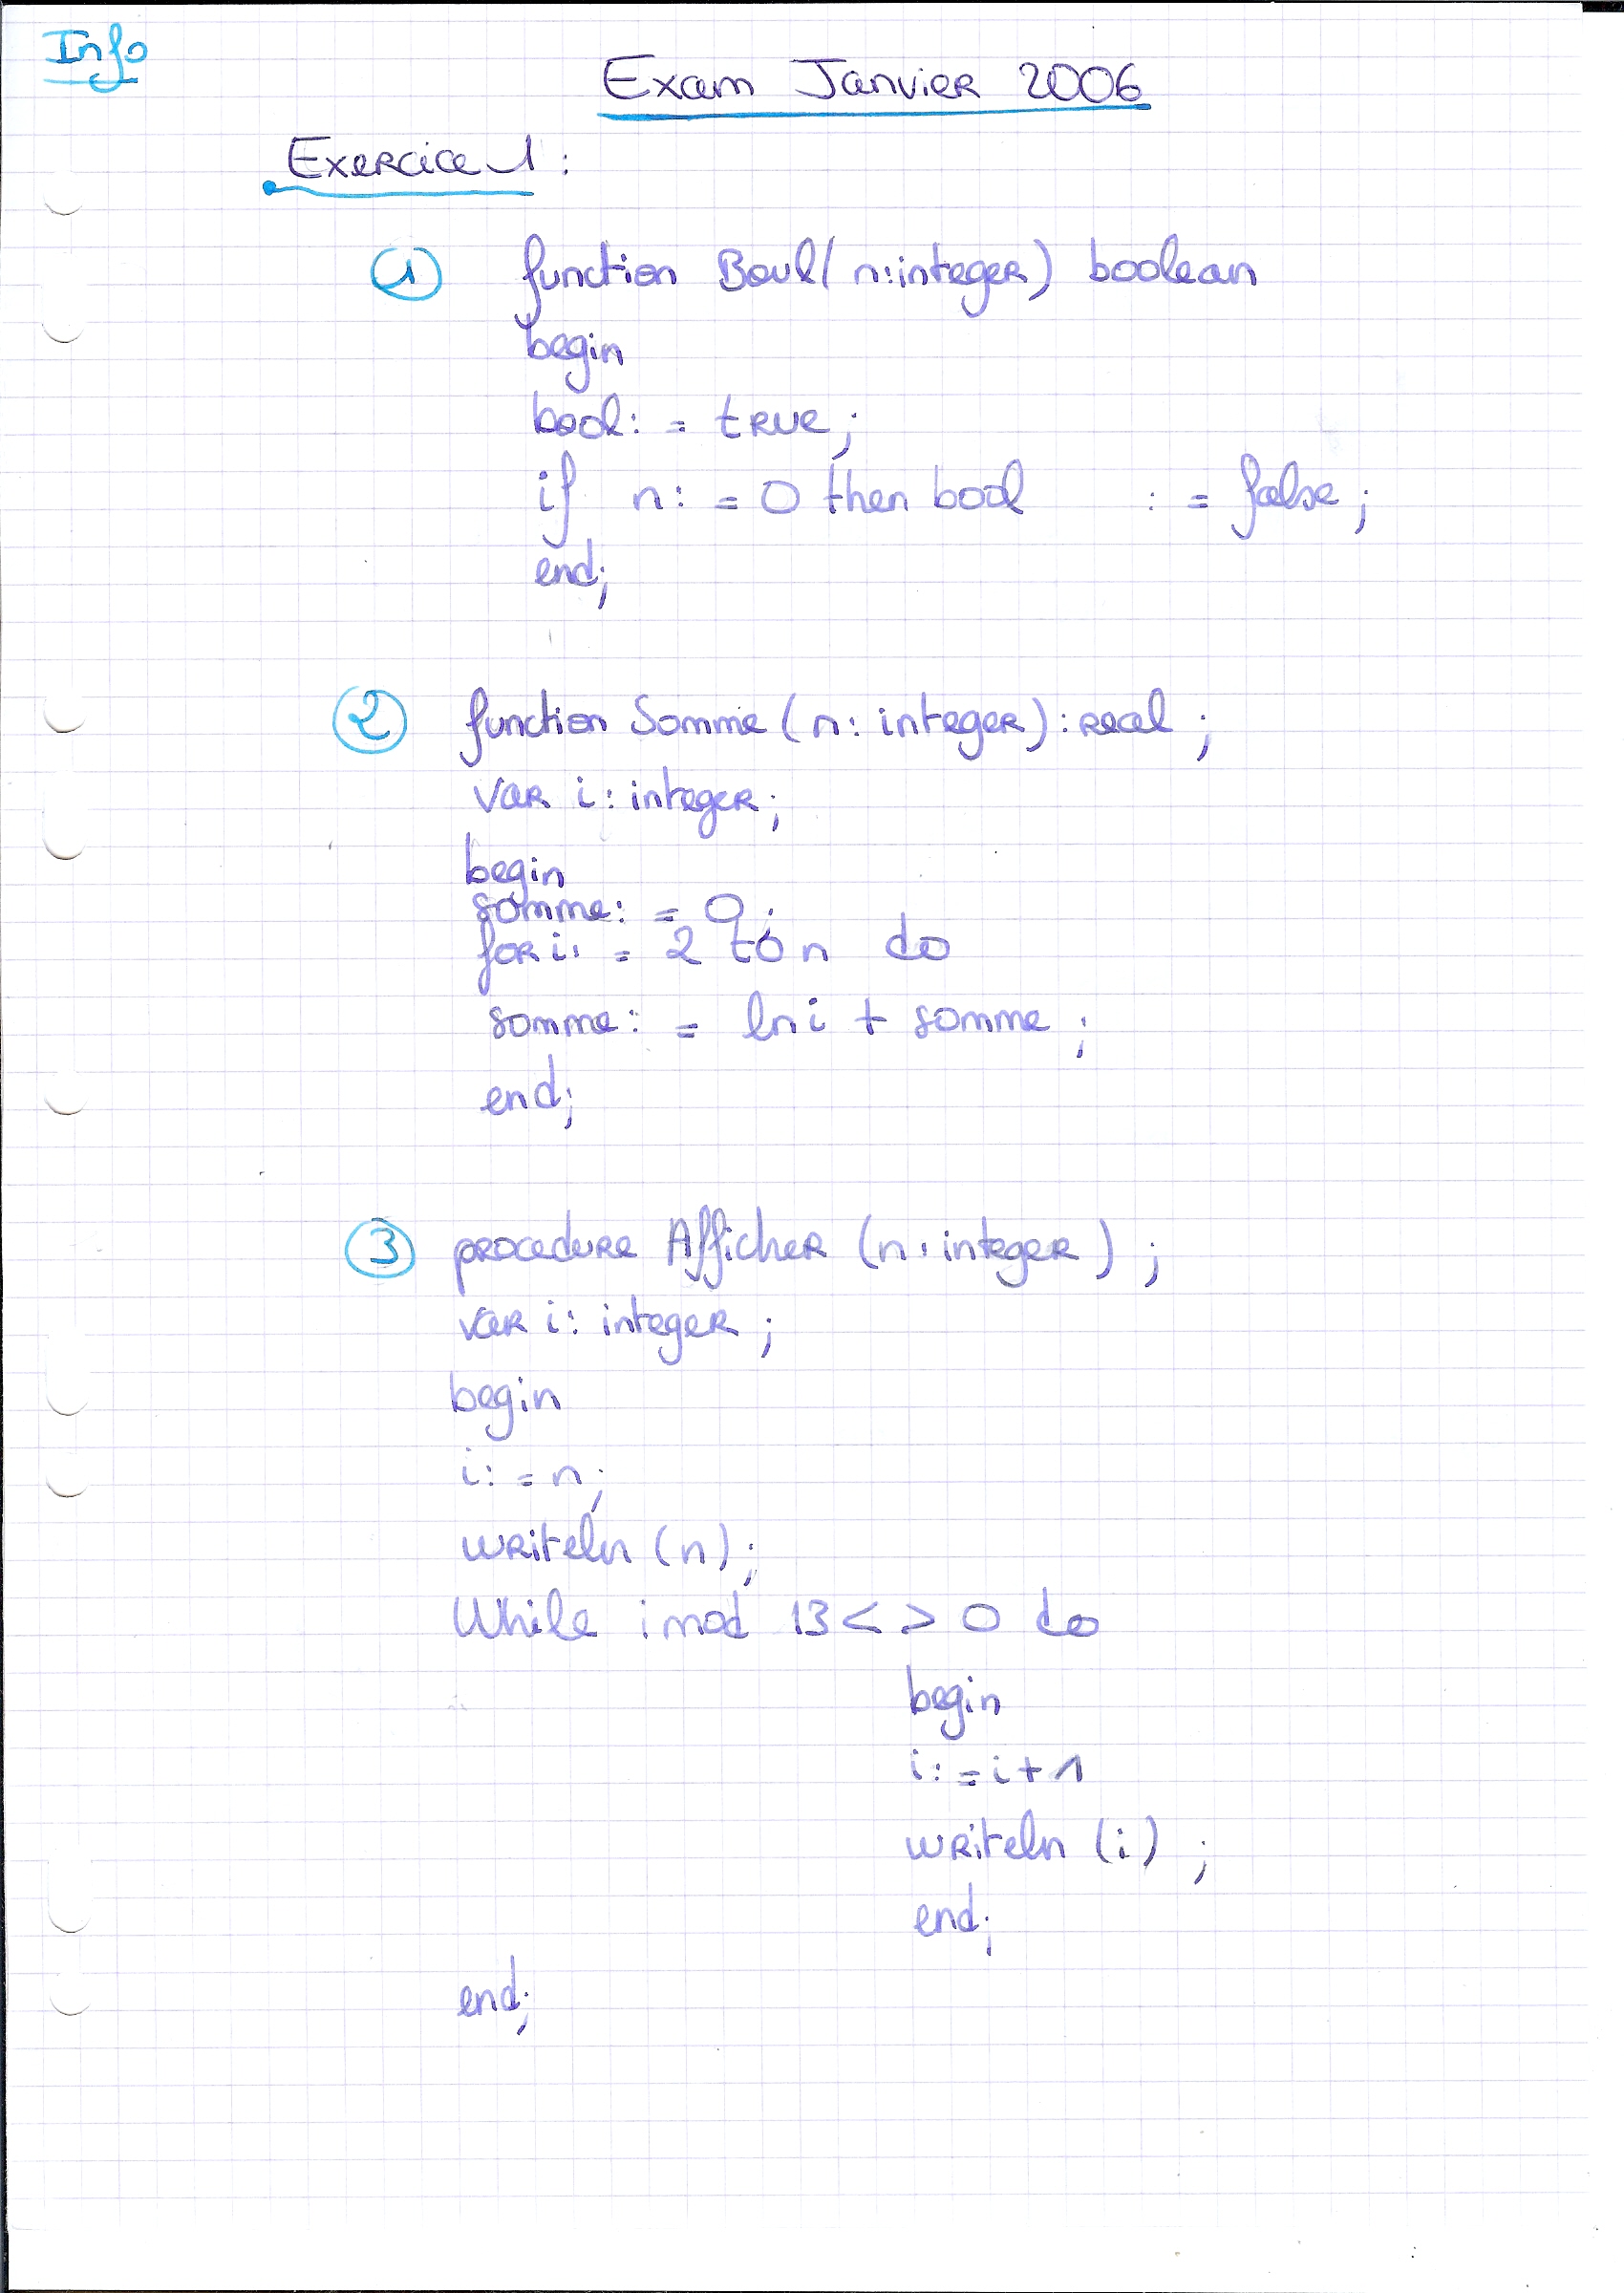 Info
Exam Janvier 2006
Exercice 1 :
1 function Boul( n:integer) boolean
begin
bool: = true;
if n: = 0 then bool : = false;
end;
2 function Somme (n: integer) : real ;
var i: integer;
begin
somme: = 0;
for i: = 2 to n do
somme: = ln i + somme ;
end;
3 procedure Afficher (n: integer) ;
var i: integer ;
begin
i: = n;
writeln (n);
While i mod 13 < > 0 do
begin
i: = i + 1
writeln (i) ;
end;
end;